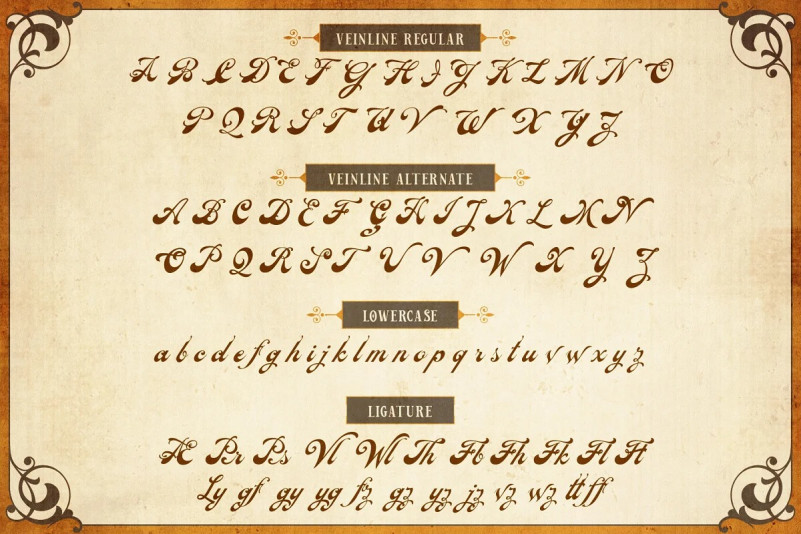 VEINLINE REGULAR
A B C D E F G H I J K L M N O
P Q R S T U V W X Y Z
VEINLINE ALTERNATE
A B C D E F G H I J K L M N
O P Q R S T U V W X Y Z
LOWERCASE
a b c d e f g h i j k l m n o p q r s t u v w x y z
LIGATURE
Æ Pr Ps Vl Wl Th Fb Fh Fk Fl Ft
Ly gf gy yg fz gz yz jz vz wz tt ff